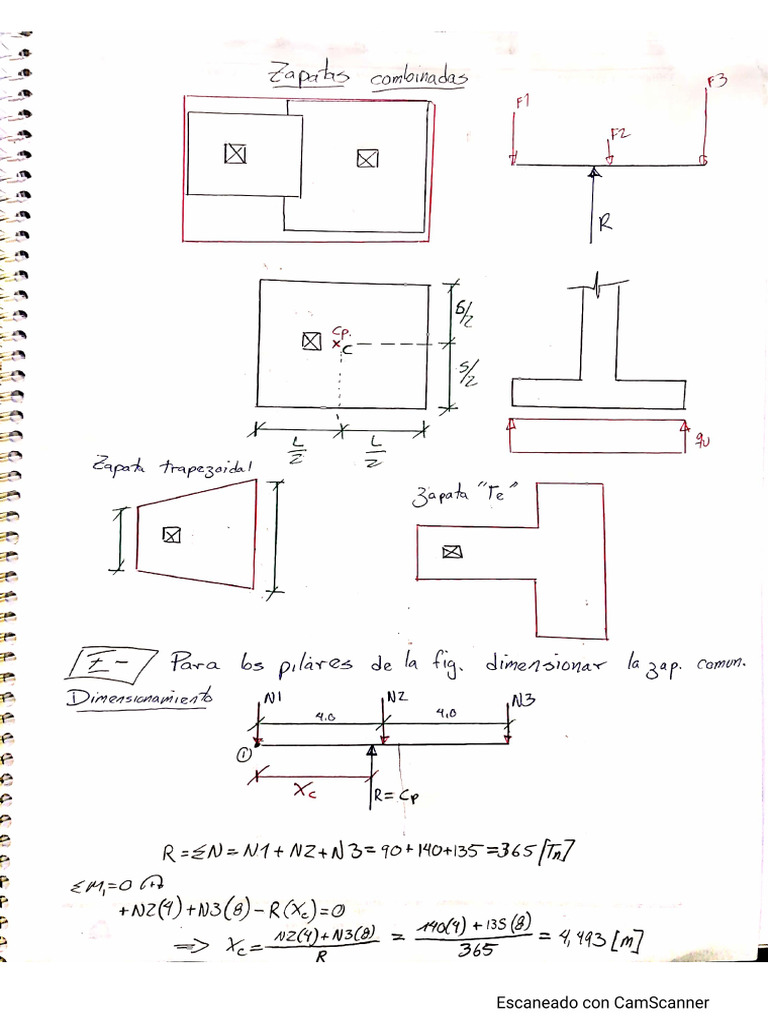 Zapatas combinadas
F1
F2
F3
R
Cp.
C
S/2
S/2
L/2
L/2
qu
Zapata trapezoidal
Zapata "Te"
E- Para los pilares de la fig. dimensionar la zap. comun.
Dimensionamiento
N1 N2 N3
4.0 4.0
①
Xc
R = Cp
R = ΣN = N1 + N2 + N3 = 90 + 140 + 135 = 365 [Tn]
ΣM1 = 0
+N2(4) + N3(8) - R(Xc) = 0
=> Xc = N2(4) + N3(8) / R = 140(4) + 135(8) / 365 = 4,493 [m]
Escaneado con CamScanner